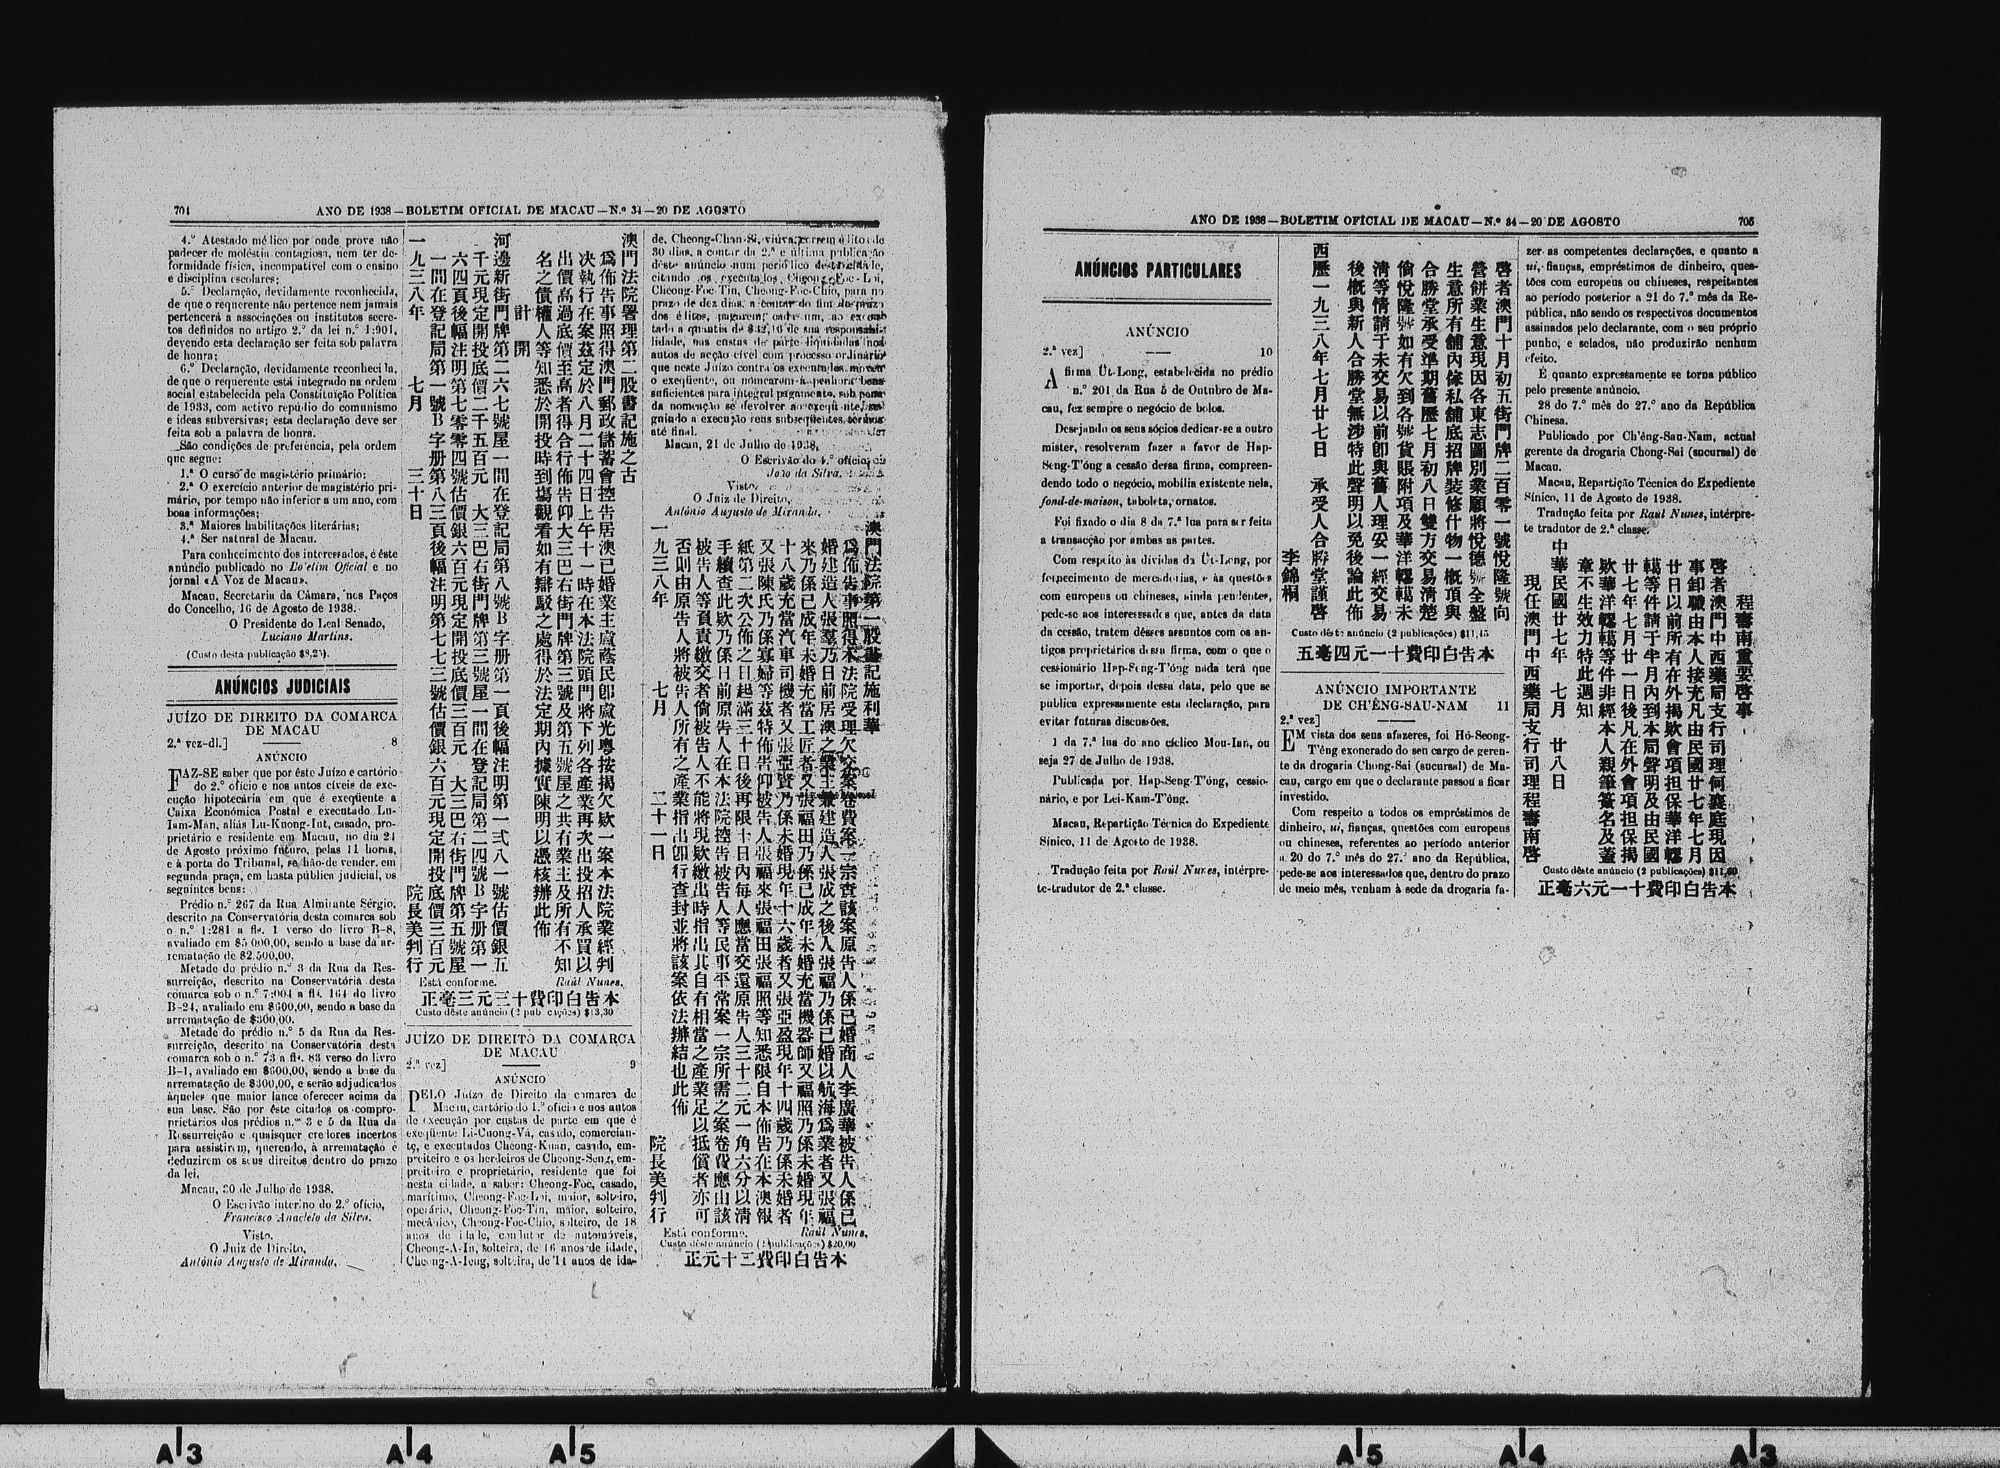 704
ANO DE 1938 — BOLETIM OFICIAL DE MACAU — N.º 34 — 20 DE AGOSTO
4.º Atestado médico por onde prove não
padecer de moléstia contagiosa, nem ter de-
formidade física, incompatível com o ensino
e disciplina escolares;
5.º Declaração, devidamente reconhecida,
de que o requerente não pertence nem jamais
pertencerá a associações ou institutos secre-
tos definidos no artigo 2.º da lei n.º 1:901,
devendo esta declaração ser feita sob palavra
de honra;
6.º Declaração, devidamente reconhecida,
de que o requerente está integrado na ordem
social estabelecida pela Constituição Política
de 1933, com activo repúdio do comunismo
e ideas subversivas; esta declaração deve ser
feita sob a palavra de honra.
São condições de preferência, pela ordem
que segue:
1.ª O curso de magistério primário;
2.ª O exercício anterior de magistério pri-
mário, por tempo não inferior a um ano, com
boas informações;
3.ª Maiores habilitações literárias;
4.ª Ser natural de Macau.
Para conhecimento dos interessados, é êste
anúncio publicado no Boletim Oficial e no
jornal «A Voz de Macau».
Macau, Secretaria da Câmara, nos Paços
do Concelho, 16 de Agosto de 1938.
O Presidente do Leal Senado,
Luciano Martins.
(Custo desta publicação $8,25).
ANÚNCIOS JUDICIAIS
JUÍZO DE DIREITO DA COMARCA
DE MACAU
2.ª vez-dl.] 8
ANÚNCIO
FAZ-SE saber que por êste Juízo e cartório
do 2.º ofício e nos autos cíveis de exe-
cução hipotecária em que é exeqüente a
Caixa Económica Postal e executado Lu-
Iam-Man, aliás Lu-Kuong-Iut, casado, pro-
prietário e residente em Macau, no dia 24
de Agosto próximo futuro, pelas 11 horas,
e à porta do Tribunal, se hão-de vender, em
segunda praça, em hasta pública judicial, os
seguintes bens:
Prédio n.º 267 da Rua Almirante Sérgio,
descrito na Conservatória desta comarca sob
o n.º 1:281 a fls. 1 verso do livro B-8,
avaliado em $5.000,00, sendo a base da ar-
rematação de $2.500,00.
Metade do prédio n.º 3 da Rua da Res-
surreição, descrito na Conservatória desta
comarca sob o n.º 7:004 a fls. 164 do livro
B-24, avaliado em $600,00, sendo a base da
arrematação de $300,00.
Metade do prédio n.º 5 da Rua da Res-
surreição, descrito na Conservatória desta
comarca sob o n.º 73 a fls. 83 verso do livro
B-1, avaliado em $600,00, sendo a base da
arrematação de $300,00, e serão adjudicados
àqueles que maior lance oferecer acima da
sua base. São por êste citados os compro-
prietários dos prédios n.ºs 3 e 5 da Rua da
Ressurreição e quaisquer credores incertos
para assistirem, querendo, à arrematação e
deduzirem os seus direitos dentro do prazo
da lei.
Macau, 30 de Julho de 1938.
O Escrivão interino do 2.º ofício,
Francisco Anacleto da Silva.
Visto.
O Juiz de Direito,
António Augusto de Miranda.
澳門法院署理第二股書記施之古
爲佈告事照得澳門郵政儲蓄會控告居澳已婚業主盧蔭民卽盧光粤按揭欠欵一案本法院業經判
决執行在案茲定於八月二十四日上午十一時在本法院頭門將下列各產業再次出投招人承買以
出價高過底價至高者得合行佈告仰大三巴右街門牌第三號及第五號屋之共有業主及所有不知
名之債權人等知悉於開投時到塲觀看如有辯駁之處得於法定期內據實陳明以憑核辦此佈
計開
河邊新街門牌第二六七號屋一間在登記局第八號B字册第一頁後幅注明第一弍八一號估價銀五
千元現定開投底價二千五百元 大三巴右街門牌第三號屋一間在登記局第二四號B字册第一
六四頁後幅注明第七零零四號估價銀六百元現定開投底價三百元 大三巴右街門牌第五號屋
一間在登記局第一號B字册第八三頁後幅注明第七七三號估價銀六百元現定開投底價三百元
一九三八年 七月 三十日 院長美判行
Está conforme. Raúl Nunes.
正毫三元三十費印白告本
Custo dêste anúncio (2 publicações) $13,30
JUÍZO DE DIREITO DA COMARCA
DE MACAU
2.ª vez] 9
ANÚNCIO
PELO Juízo de Direito da comarca de
Macau, cartório do 1.º ofício e nos autos
de execução por custas de parte em que é
exeqüente Li-Cuong-Vá, casado, comercian-
te, e executados Cheong-Kuan, casado, em-
preiteiro e os herdeiros de Cheong-Seng, em-
preiteiro e proprietário, residente que foi
nesta cidade, a saber: Cheong-Foc, casado,
marítimo, Cheong-Foc-Loi, maior, solteiro,
operário, Cheong-Foc-Tin, maior, solteiro,
mecânico, Cheong-Foc-Chio, solteiro, de 18
anos de idade, condutor de automóveis,
Cheong-A-In, solteira, de 16 anos de idade,
Cheong-A-Ieng, solteira, de 14 anos de ida-
de, Cheong-Chan-Si, viúva, correm éditos de
30 dias, a contar da 2.ª e última publicação
dêste anúncio num periódico desta cidade,
citando os executados Cheong-Foc-Loi,
Cheong-Foc-Tin, Cheong-Foc-Chio, para no
prazo de dez dias, a contar do fim do prazo
dos éditos, pagarem, cada um, ao exeqüen-
tado a quantia de $32,16 de sua responsabi-
lidade, nas custas de parte liquidadas nos
autos de acção cível com processo ordinário
que neste Juízo contra os executados moveu
o exeqüente, ou nomearem à penhora bens
suficientes para integral pagamento, sob pena
da nomeação se devolver ao exeqüente, se-
guindo a execução seus subseqüentes termos
até final.
Macau, 21 de Julho de 1938.
O Escrivão do 1.º ofício,
João da Silva.
Visto.
O Juiz de Direito,
António Augusto de Miranda.
澳門法院第一股書記施利華
爲佈告事照得本法院受理欠交案卷費案一宗查該案原告人係已婚商人李廣華被告人係已
婚建造人張羣乃日前居澳之業主兼建造人張成之後人張福乃係已婚以航海爲業者又張福
來乃係已成年未婚充當工匠者又張福田乃係已成年未婚充當機器師又福照乃係未婚現年
十八歲充當汽車司機者又張亞賢乃係未婚現年十六歲者又張亞盈現年十四歲乃係未婚者
又張陳氏乃係寡婦等茲特佈告仰被告人張福來張福田張福照等知悉限自本佈告在本澳報
紙第二次公佈之日起滿三十日後再限十日內每人應當交還原告人三十二元一角六分以淸
手續查此欵乃係日前原告人在本法院控告被告人等民事平常案一宗所需之案卷費應由該
被告人等負責繳交者倘被告人不能將現欵繳出時指出其自有相當之產業足以抵償者亦可
否則由原告人將被告人所有之產業指出卽行查封並將該案依法辦結也此佈
一九三八年 七月 二十一日 院長美判行
Está conforme. Raúl Nunes.
Custo dêste anúncio (2 publicações) $30,00
正元十三費印白告本
ANO DE 1938 — BOLETIM OFICIAL DE MACAU — N.º 34 — 20 DE AGOSTO
705
ANÚNCIOS PARTICULARES
ANÚNCIO
2.ª vez] 10
A firma Út-Long, estabelecida no prédio
n.º 201 da Rua 5 de Outubro de Ma-
cau, fez sempre o negócio de bolos.
Desejando os seus sócios dedicar-se a outro
mister, resolveram fazer a favor de Hap-
Seng-T'óng a cessão dessa firma, compreen-
dendo todo o negócio, mobília existente nela,
fond-de-maison, taboleta, ornatos.
Foi fixado o dia 8 da 7.ª lua para ser feita
a transacção por ambas as partes.
Com respeito às dívidas da Út-Long, por
fornecimento de mercadorias, e às questões
com europeus ou chineses, ainda pendentes,
pede-se aos interessados que, antes da data
da cessão, tratem dêsses assuntos com os an-
tigos proprietários dessa firma, com o que o
cessionário Hap-Seng-T'óng nada terá que
se importar, depois dessa data, pelo que se
publica expressamente esta declaração, para
evitar futuras discussões.
1 da 7.ª lua do ano cíclico Mou-Ian, ou
seja 27 de Julho de 1938.
Publicada por Hap-Seng-T'óng, cessio-
nário, e por Lei-Kam-T'óng.
Macau, Repartição Técnica do Expediente
Sínico, 11 de Agosto de 1938.
Tradução feita por Raúl Nunes, intérpre-
te-tradutor de 2.ª classe.
啓者澳門十月初五街門牌二百零一號悅隆號向
營餅業生意現因各東志圖別業願將悅德號全盤
生意所有舖內傢私舖底招牌裝修什物一概頂與
合勝堂承受準期舊歷七月初八日雙方交易淸楚
倘悅隆號如有欠到各號貨賬附項及華洋轇轕未
淸等情請于未交易以前卽與舊人理妥一經交易
後概與新人合勝堂無涉特此聲明以免後論此佈
西歷一九三八年七月廿七日 承受人合勝堂謹啓
李錦桐
Custo dêste anúncio (2 publicações) $11,45
五毫四元一十費印白告本
ANÚNCIO IMPORTANTE
DE CH'ÊNG-SAU-NAM 11
2.ª vez]
EM vista dos seus afazeres, foi Hó-Seong-
T'êng exonerado do seu cargo de geren-
te da drogaria Chong-Sai (sucursal) de Ma-
cau, cargo em que o declarante passou a ficar
investido.
Com respeito a todos os empréstimos de
dinheiro, ui, fianças, questões com europeus
ou chineses, referentes ao período anterior
a 20 do 7.º mês do 27.º ano da República,
pede-se aos interessados que, dentro do prazo
de meio mês, venham à sede da drogaria fa-
zer as competentes declarações, e quanto a
ui, fianças, empréstimos de dinheiro, ques-
tões com europeus ou chineses, respeitantes
ao período posterior a 21 do 7.º mês da Re-
pública, não sendo os respectivos documentos
assinados pelo declarante, com o seu próprio
punho, e selados, não produzirão nenhum
efeito.
É quanto expressamente se torna público
pelo presente anúncio.
28 do 7.º mês do 27.º ano da República
Chinesa.
Publicado por Ch'êng-Sau-Nam, actual
gerente da drogaria Chong-Sai (sucursal) de
Macau.
Macau, Repartição Técnica do Expediente
Sínico, 11 de Agosto de 1938.
Tradução feita por Raúl Nunes, intérpre-
te tradutor de 2.ª classe.
程壽南重要啓事
啓者澳門中西藥局支行司理何襄庭現因
事卸職由本人接充凡由民國廿七年七月
廿日以前所有在外揭欵會項担保華洋轇
轕等件請于半月內到本局聲明及由民國
廿七年七月廿一日後凡在外會項担保揭
欵華洋轇轕等件非經本人親筆簽名及蓋
章不生效力特此週知
中華民國廿七年 七月 廿八日
現任澳門中西藥局支行司理程壽南啓
Custo dêste anúncio (2 publicações) $11,60
正毫六元一十費印白告本
A3 A4 A5 A5 A4 A3